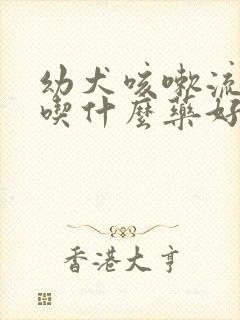 幼犬咳嗽流
喫什麼藥好
香港大亨